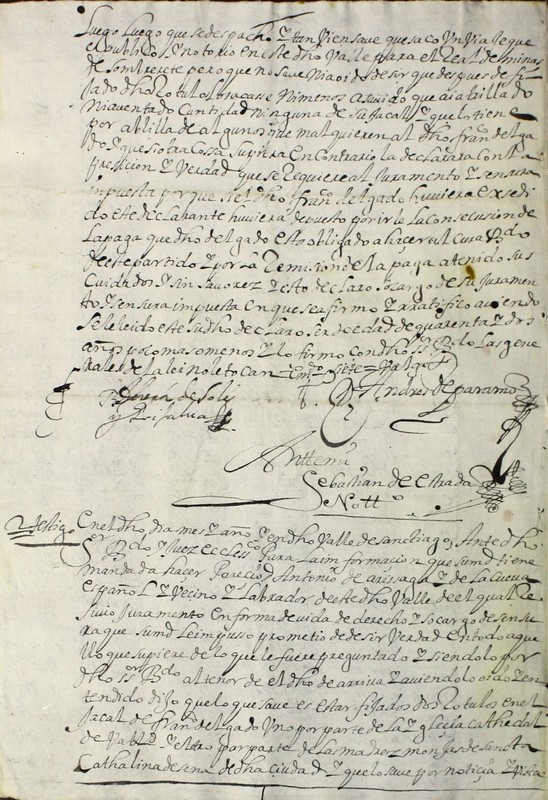 luego luego que se despachó y tan vien save que saco Un Viaje que
el publico y notorio en este dho Valle para el Real de minas
de sombrerete pero que no save ni a oido desir que despues de fi
jado dhos Rotulos tracase ni menos a avido que aia trillado
ni aventado Cantidad ninguna de su Jacal y que lo tiene
por ablilla de algunos que mal quieren al dho franco delga
do y que si otra Cossa supiera en Contrario la declarara con to
presicion y Verdad que se Requiere al Juramento y sensura
impuesta porque si el dho franco delgado huviera exsedi
do este declarante huviera depuesto por irle la Consecusion de
la paga que dho delgado esta obligado a hacer al Cura Bdo
deste partido y por la Remision de la paga a tenido sus
Cuidados y sin savores y esto declaro so cargo de su Juramen
to y sensura impuesta en que se afirmo y rratifico aviendo
sele leido este su dho declaro ser de edad de quarenta y dos
años poco mas o menos y lo firmo con dho Sr Bdo las gene
rales de la lei no le tocan
Br de Solis
y
Andres de paramo
Antte mi
Sebastian de Estrada
Notto
Testigo
En el dho dia mes y año y en dho Valle de santtiago Ante dho
Sr Bdo y Juez ecclesco Para la imformacion que su md tiene
mandada hacer Parecio Antonio de arisaga y de la Cueva
español y Vecino y Labrador deste dho Valle de el qual Re
sivio Juramento en forma devida de derecho y so cargo de sensu
ra que su md le impuso prometio de desir Verdad en todo aque
llo que supiere de lo que le fuere preguntado y siendolo por
dho Sr Bdo al tenor de el dho de arriva y aviendolo oido y en
tendido dijo que lo que save es estar fijados dos Rotulos en el
Jacal de franco delgado Uno por parte de la Yglecia Cathedral
de Valld y el otro por parte de las madrez monjas de santa
Cathalina de sena de dha ciudad y que lo save por noticia y vista